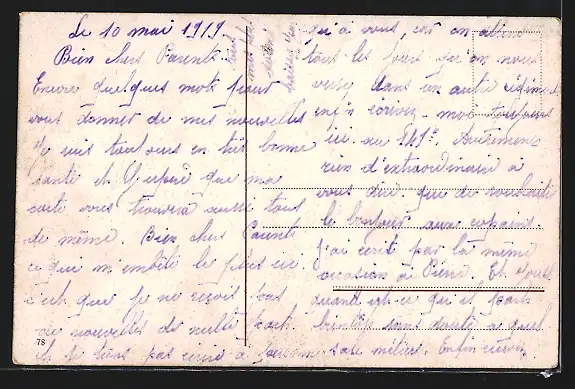 Le 10 mai 1919
Bien chers Parents.
Encore quelques mots pour
vous donner de mes nouvelles
Je suis toujours en très bonne
santé et J'espère que ma
carte vous trouvera aussi tous
de même. Bien chers Parents
ce qui m'embête le plus ici
c'est que je ne reçoit pas
de nouvelles de nulle part.
et je tiens pas écrire à personne
qu'à vous, car on attend
tous les jours qu'on nous
verse dans un autre régiment
enfin écrivez-moi toujours
ici au 341e. Autrement
rien d'extraordinaire à
vous dire que de souhaiter
le bonjour aux copains.
J'ai écrit par la même
occasion à Pierre. Et
quand est-ce qu'il part
bientôt sans doute
sale métier. Enfin
78